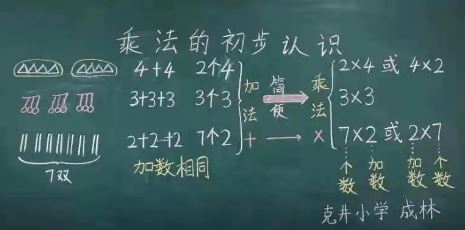 乘法的初步认识
4+4 2个4 加法 简便 乘法 2×4 或 4×2
3+3+3 3个3 3×3
2+2··+2 7个2 + × 7×2 或 2×7
7双 加数相同 个数 加数 加数 个数
克井小学 成林